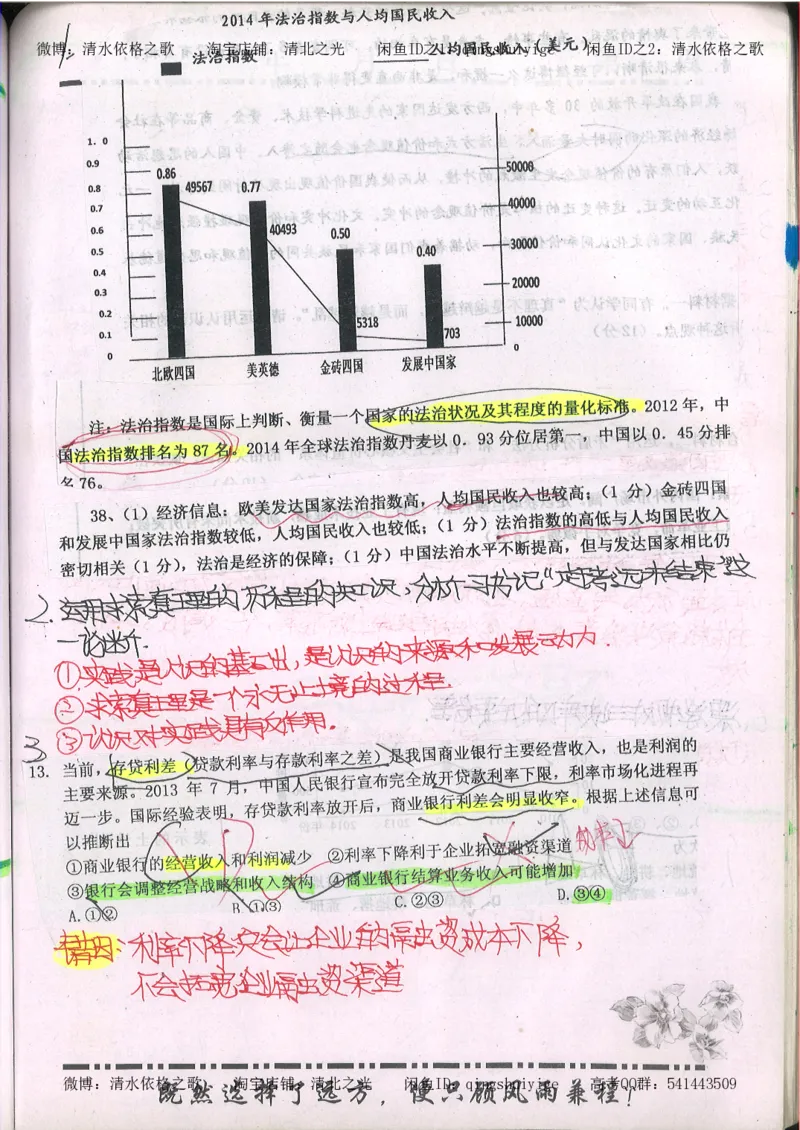 2014年法治指数与人均国民收入
微博：清水依格之歌 淘宝店铺：清北之光 闲鱼ID之1：qingshuiyige 闲鱼ID之2：清水依格之歌
1.
法治指数 人均国民收入（美元）
1.0
0.9
0.8
0.7
0.6
0.5
0.4
0.3
0.2
0.1
0
0.86
49567
0.77
40493
0.50
5318
0.40
703
50000
40000
30000
20000
10000
0
北欧四国 美英德 金砖四国 发展中国家
注：法治指数是国际上判断、衡量一个国家的法治状况及其程度的量化标准。2012年，中
国法治指数排名为87名。2014年全球法治指数丹麦以0.93分位居第一，中国以0.45分排
名76。
38、（1）经济信息：欧美发达国家法治指数高，人均国民收入也较高；（1分）金砖四国
和发展中国家法治指数较低，人均国民收入也较低；（1分）法治指数的高低与人均国民收入
密切相关（1分），法治是经济的保障；（1分）中国法治水平不断提高，但与发达国家相比仍
2. 运用求索真理的历程的知识，分析习书记“定
一论断.
①实践是认识的基础，是认识的来源和发展动力.
②求索真理是一个永无止境的过程.
③认识对实践具有反作用.
3
13. 当前，存贷利差（贷款利率与存款利率之差）是我国商业银行主要经营收入，也是利润的
主要来源。2013 年 7 月，中国人民银行宣布完全放开贷款利率下限，利率市场化进程再
迈一步。国际经验表明，存贷款利率放开后，商业银行利差会明显收窄。根据上述信息可
以推断出
①商业银行的经营收入和利润减少 ②利率下降利于企业拓宽融资渠道
③银行会调整经营战略和收入结构 ④商业银行结算业务收入可能增加
A.①② B.①③ C.②③ D.③④
错因：利率下降只会让企业的融资成本下降，
不会拓宽企业融资渠道
微博：清水依格之歌 淘宝店铺：清北之光 闲鱼ID：qingshuiyige 高考QQ群：541443509
既然选择了远方，便只顾风雨兼程！